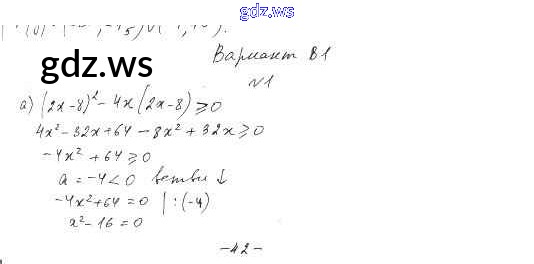 gdz.ws
Вариант В1
gdz.ws
№1
а) (2x-8)² - 4x(2x-8) ≥ 0
4x² - 32x + 64 - 8x² + 32x ≥ 0
-4x² + 64 ≥ 0
a = -4 < 0 ветви ↓
-4x² + 64 = 0 | : (-4)
x² - 16 = 0
-42-